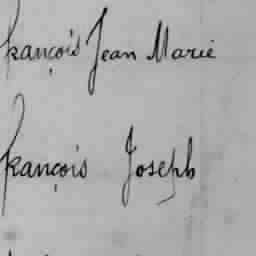 François Jean Marie
François Joseph